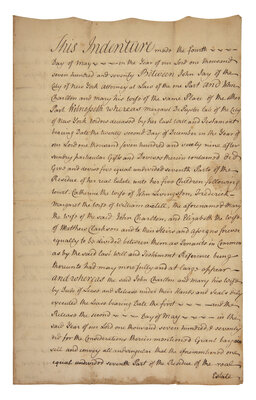 This Indenture made the fourth
Day of May in the Year of our Lord one thousand
seven hundred and seventy Between John Jay of the
City of New York Attorney at Law of the one Part and John
Charlton and Mary his Wife of the same Place of the other
Part Witnesseth whereas Margaret De late of the City
of New York Widow deceased by her last Will and Testament
bearing Date the twenty second Day of December in the Year of
our Lord one thousand seven hundred and sixty nine after
sundry particular Gifts and Devises therein contained Did
Give and devise five equal undivided seventh Parts of the
Residue of her real Estate unto her five Children following
to wit. Catherine the Wife of John Livingston, Frederick,
Margaret the Wife of William Axtell, the aforenamed Mary
the Wife of the said John Charlton, and Elizabeth the Wife
of Matthew Clarkson and to their Heirs and Assigns forever
equally to be divided between them as Tenants in Common
as by the said last Will and Testament Reference being
thereunto had may more fully and at large appear
And whereas the said John Charlton and Mary his Wife
by Deeds of Lease and Release under their Hands and Seals duly
executed the Lease bearing Date the first and the
Release the second Day of May in the
said Year of our Lord one thousand seven hundred & seventy
did for the Considerations therein mentioned Grant bargain
sell and convey all and singular that the aforementioned one
equal undivided seventh Part of the Residue of the real
Estate